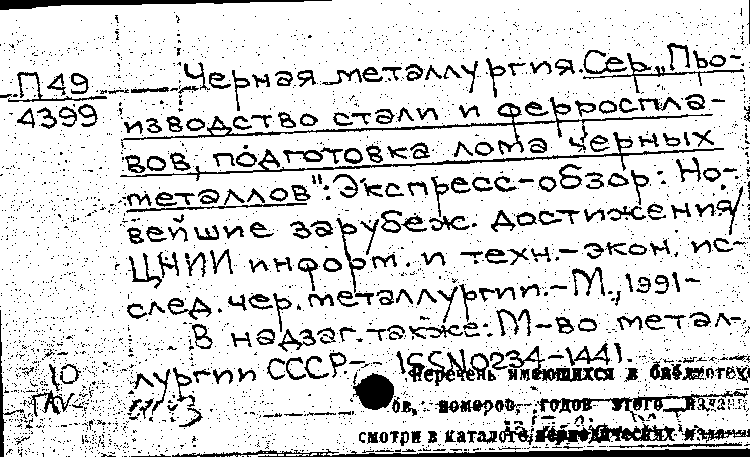 П49
4399
Черная металлургия. Сер. „Про-
изводство стали и ферроспла-
вов, подготовка лома черных
металлов": Экспресс-обзор: Но-
вейшие зарубеж. достижения/
ЦНИИ информ. и техн.-экон. ис-
след. чер. металлургии.-М., 1991-
В надзаг. также: М-во метал-
лургии СССР.- ISSN 0234-1441.
10
Перечень имеющихся в библиотеке
ов, номеров, годов этого издан
смотри в каталоге периодических издан